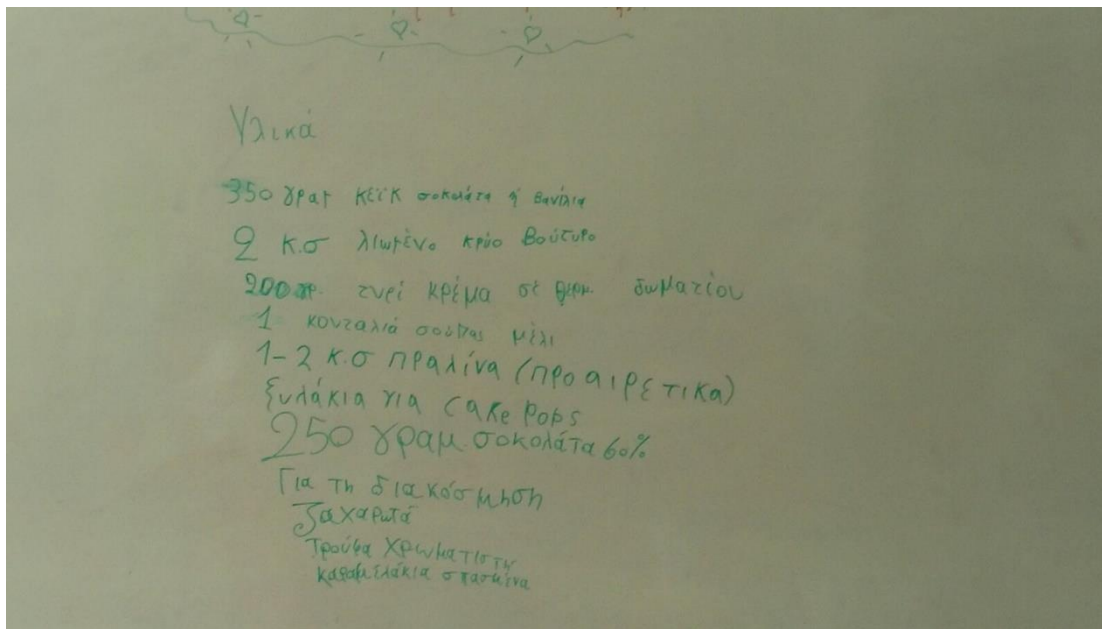 Υλικά
350 γραμ κέικ σοκολάτα ή βανίλια
2 κ.σ λιωμένο κρύο βούτυρο
200 γρ. τυρί κρέμα σε θερμ. δωματίου
1 κουταλιά σούπας μέλι
1-2 κ.σ πραλίνα (προαιρετικα)
ξυλάκια για cake pops
250 γραμ. σοκολάτα 60%
Για τη διακόσμηση
Ζαχαρωτά
Τρούφα χρωματιστή
καραμελάκια σπασμένα